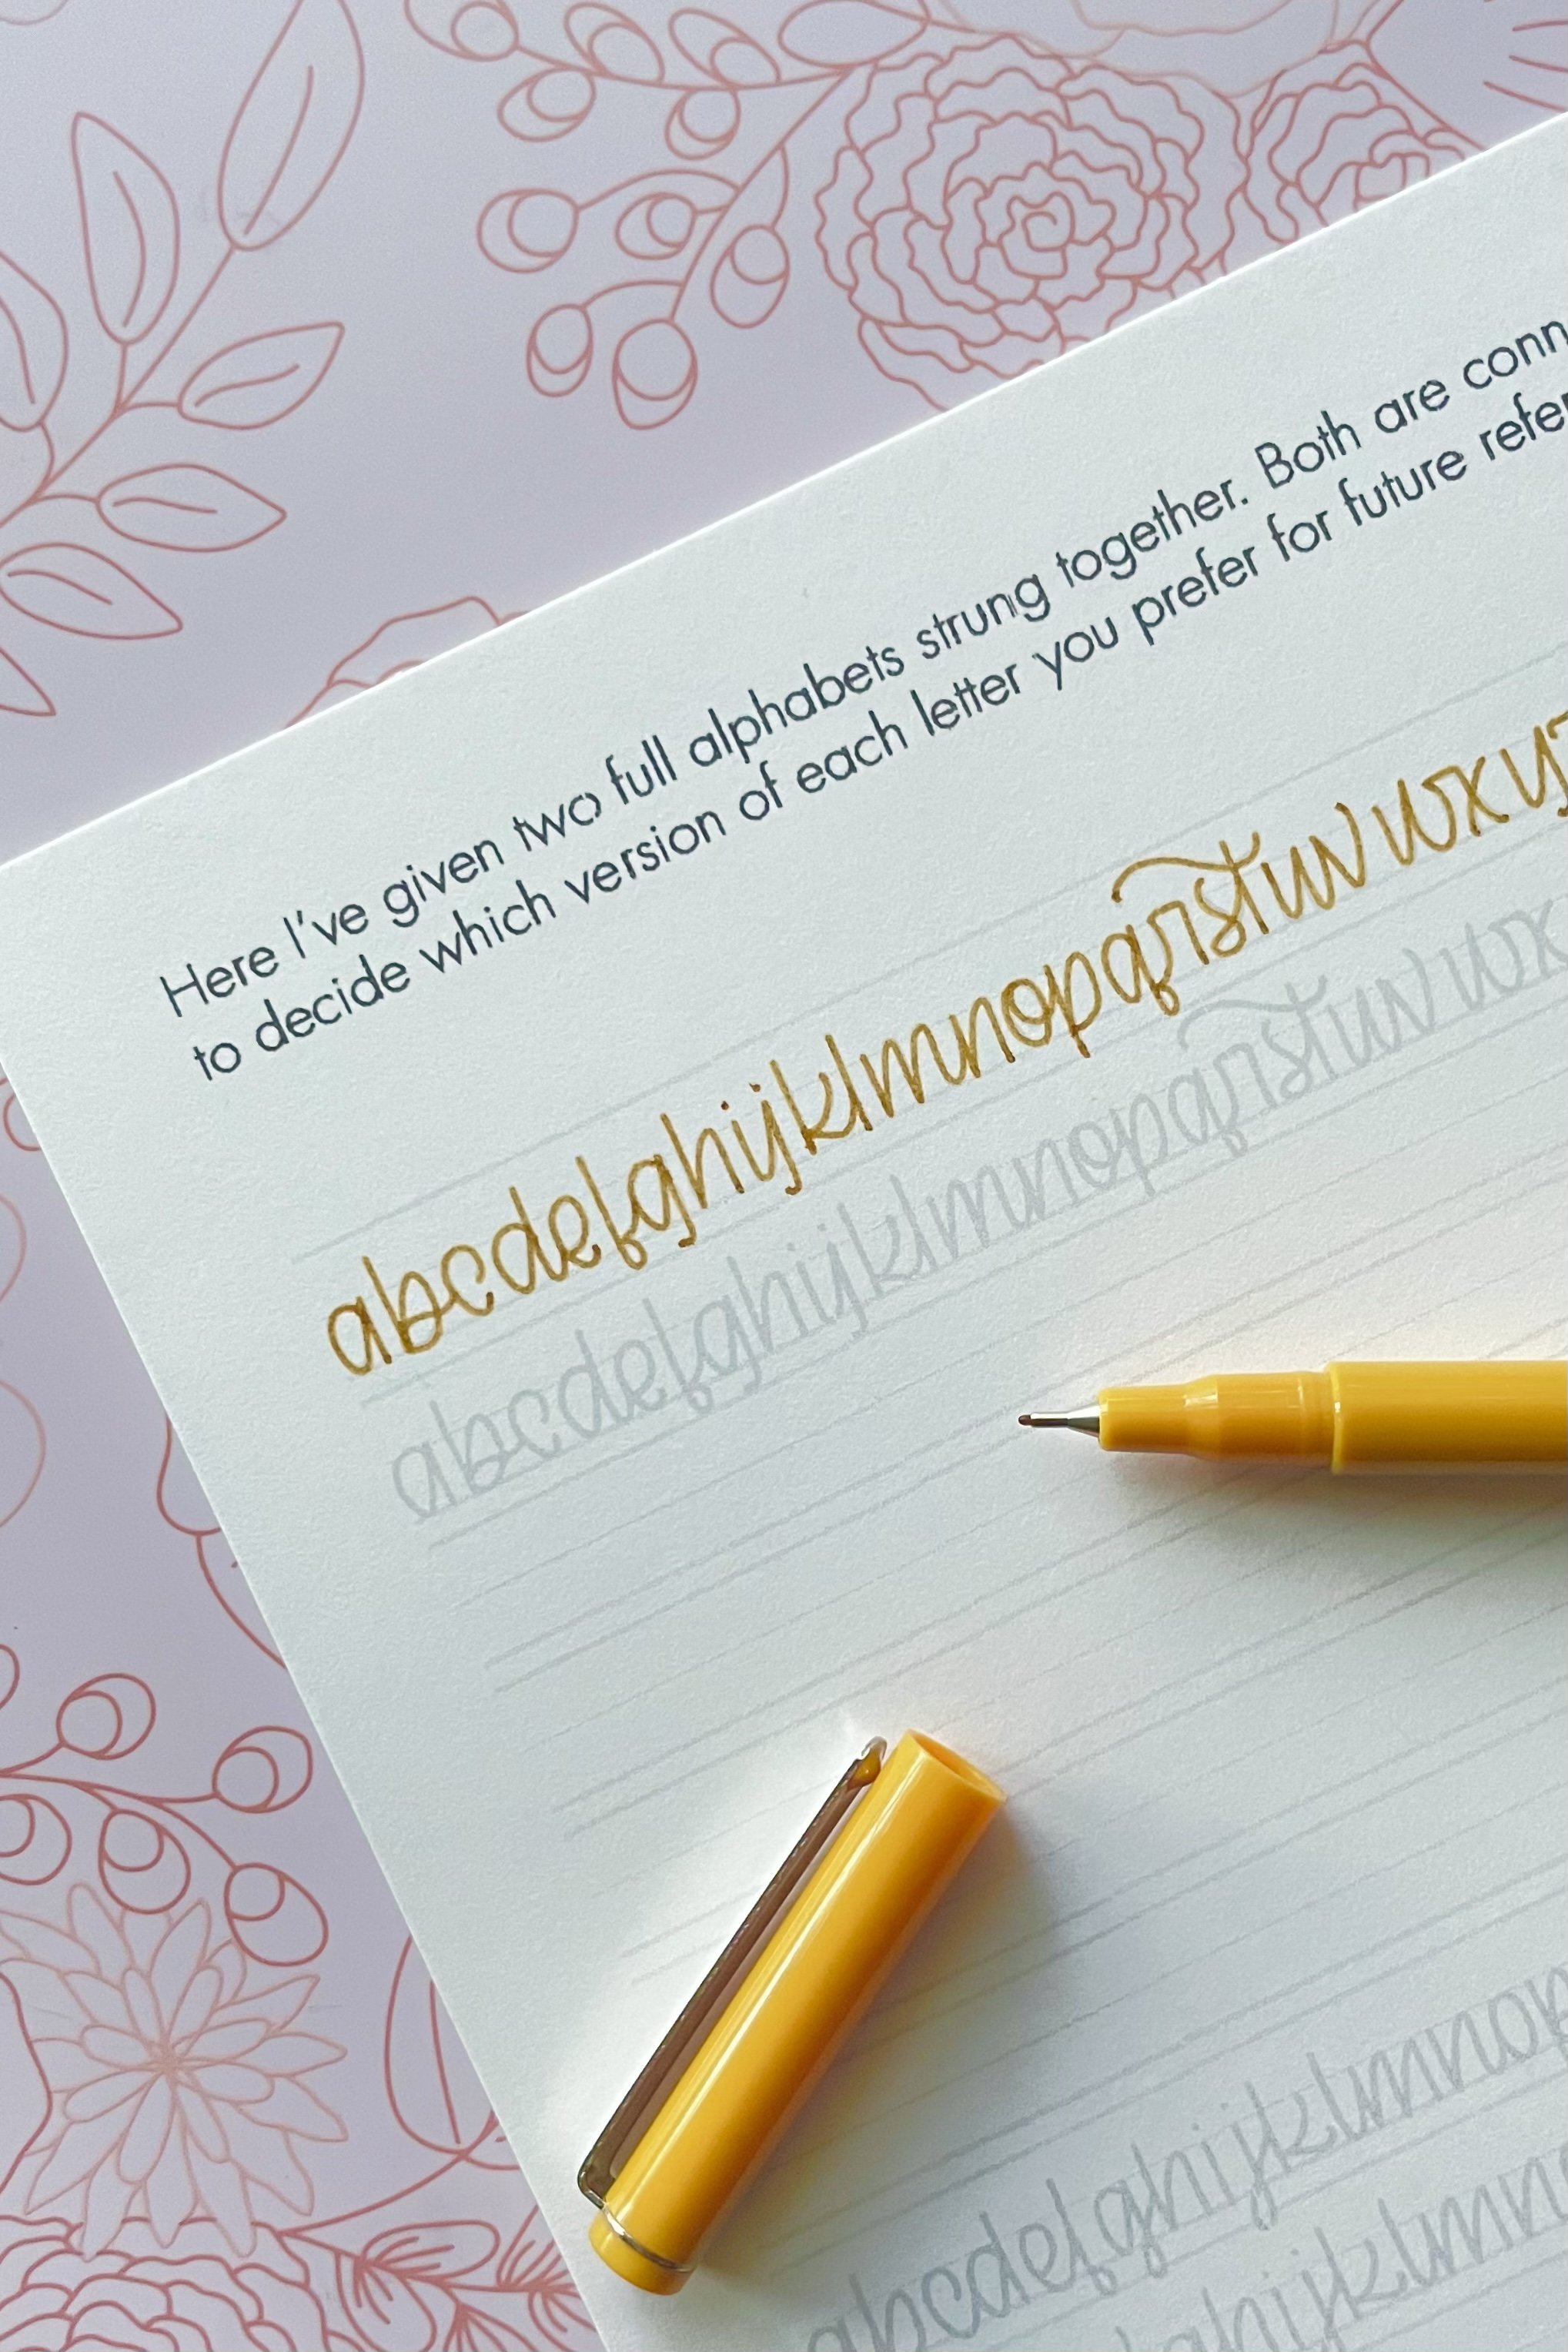 Here I've given two full alphabets strung together. Both are conn
to decide which version of each letter you prefer for future refer
abcdefghijklmnopqrstuvwxyz
abcdefghijklmnopqrstuvwx
abcdefghijklmnop
ghijklmn